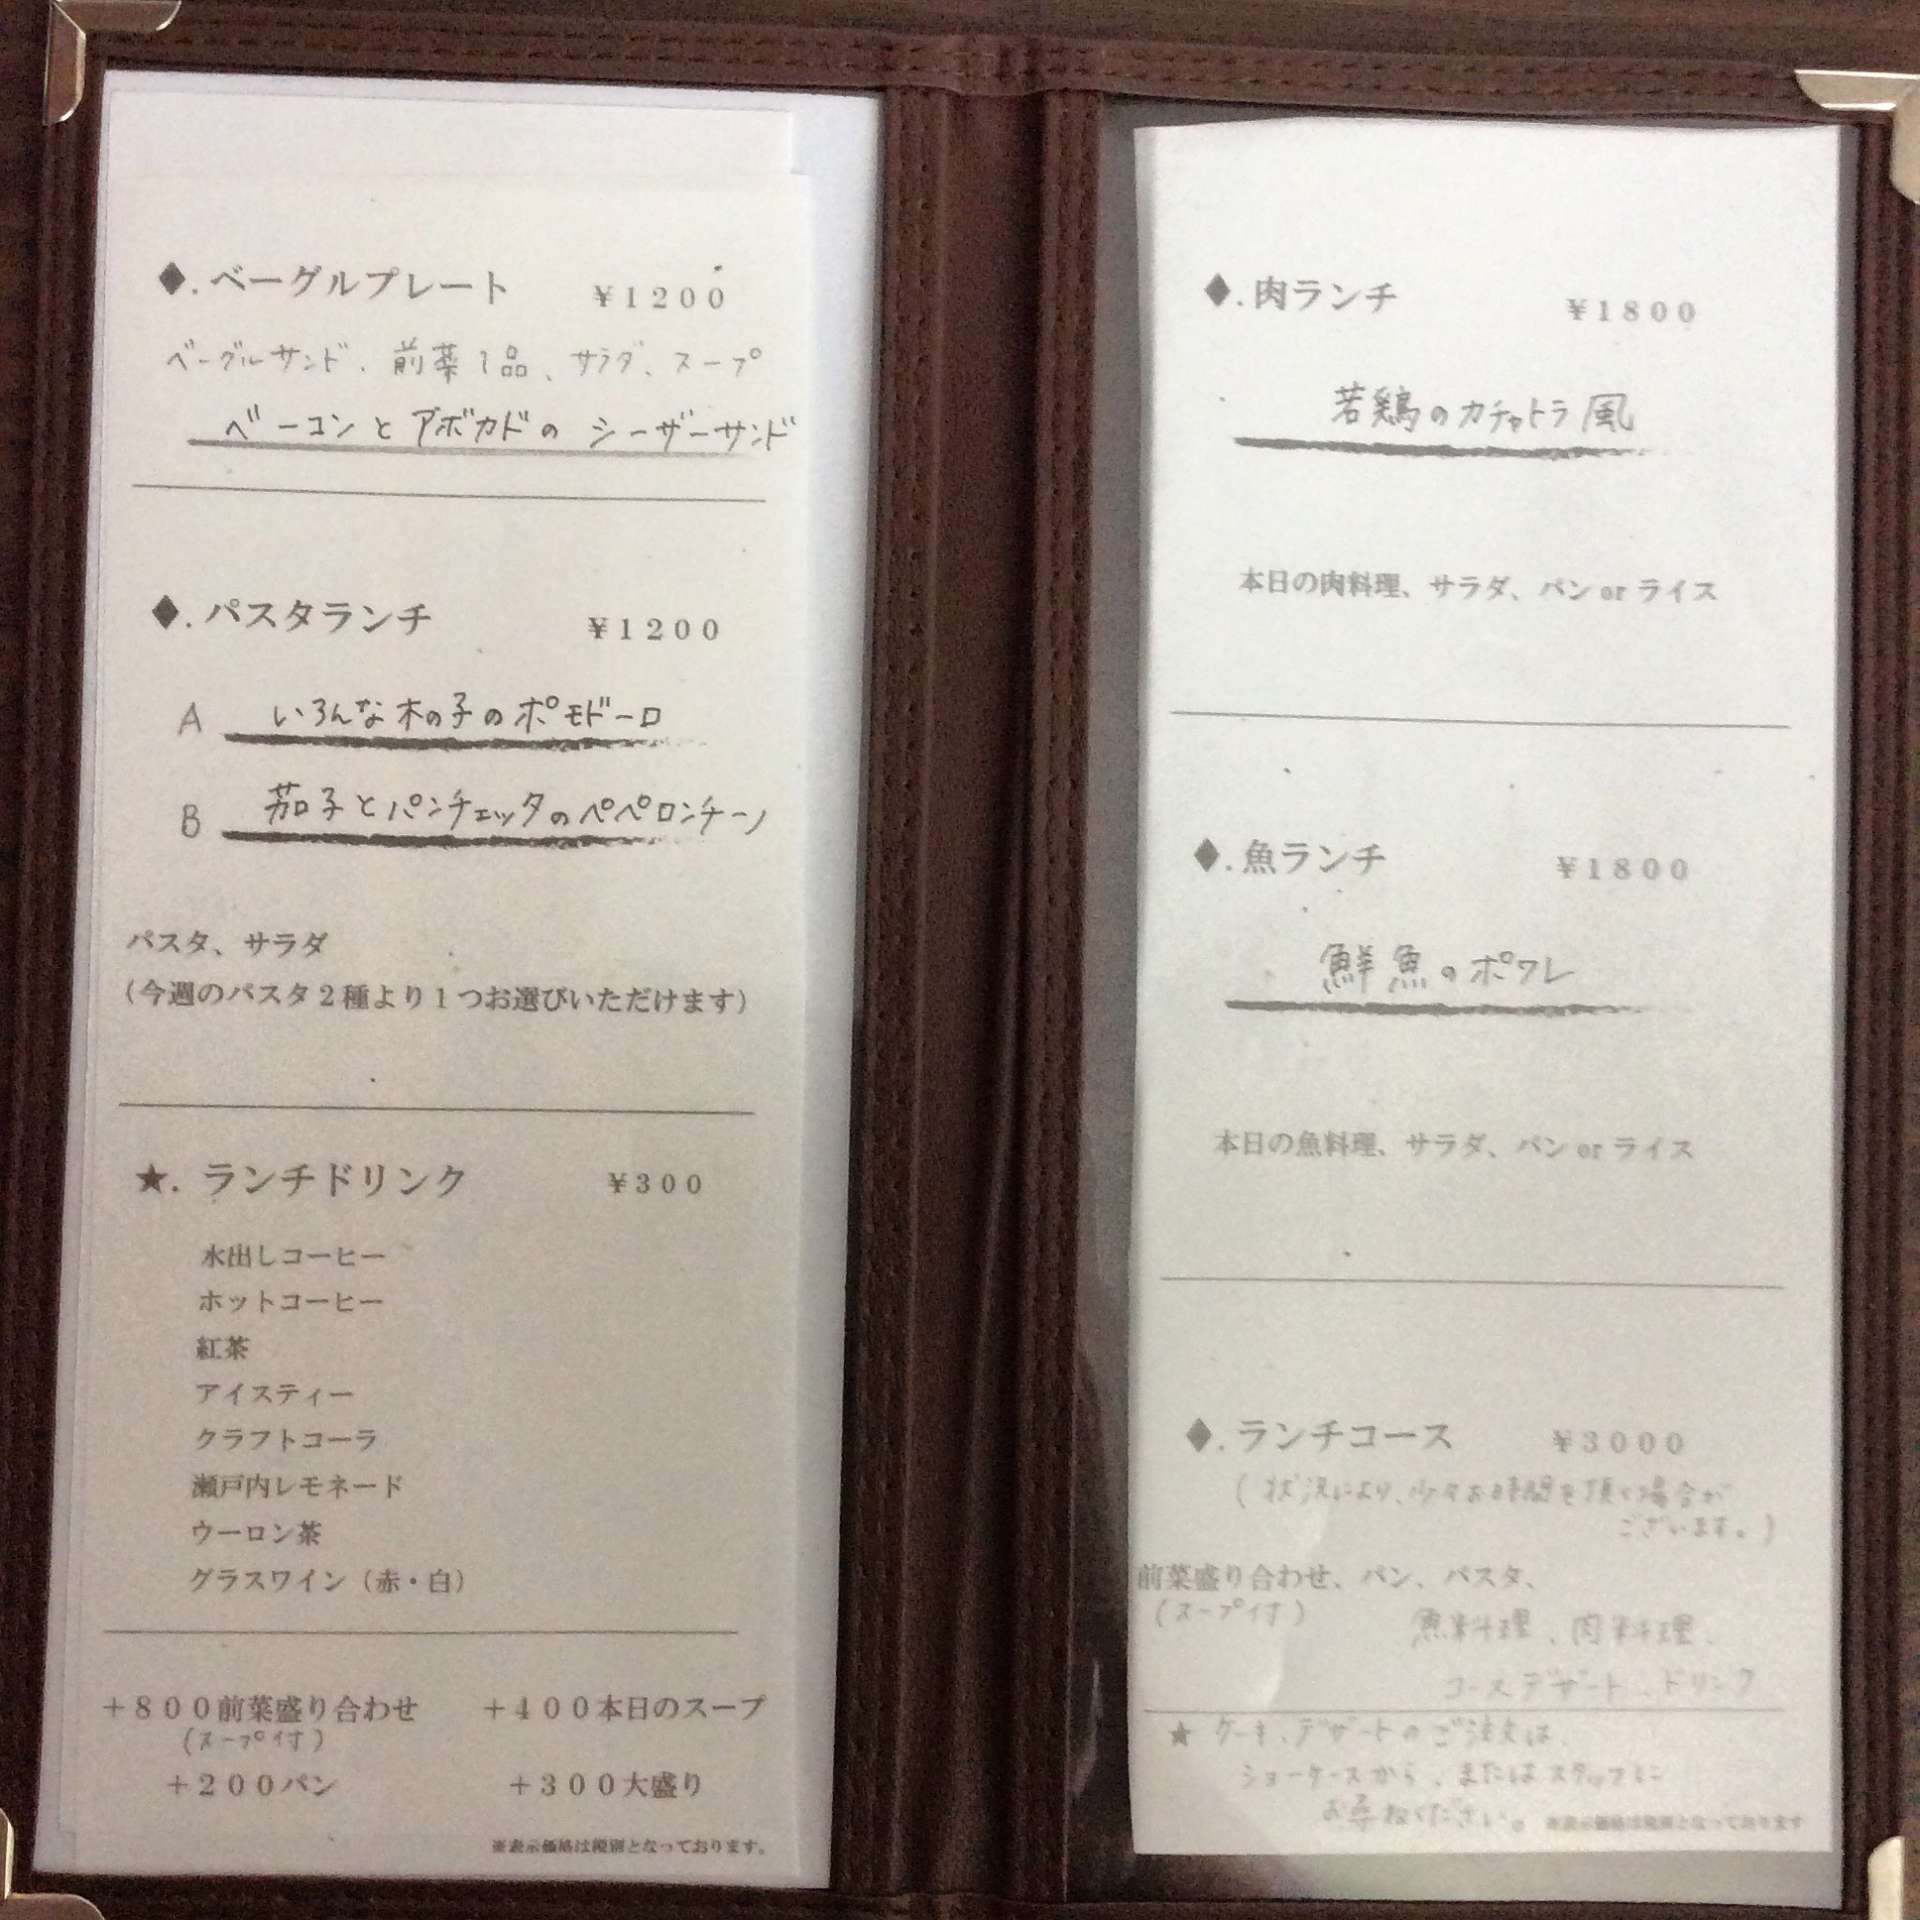 ◆. ベーグルプレート ￥1200
ベーグルサンド、前菜1品、サラダ、スープ
ベーコンとアボカドの シーザーサンド
◆. パスタランチ ￥1200
A いろんな木の子のポモドーロ
B 茄子とパンチェッタのペペロンチーノ
パスタ、サラダ
（今週のパスタ２種より１つお選びいただけます）
★. ランチドリンク ￥300
水出しコーヒー
ホットコーヒー
紅茶
アイスティー
クラフトコーラ
瀬戸内レモネード
ウーロン茶
グラスワイン（赤・白）
＋８００前菜盛り合わせ ＋４００本日のスープ
(スープ付)
＋２００パン ＋３００大盛り
※表示価格は税別となっております。
◆. 肉ランチ ￥1800
若鶏のカチャトラ風
本日の肉料理、サラダ、パン or ライス
◆. 魚ランチ ￥1800
鮮魚のポワレ
本日の魚料理、サラダ、パン or ライス
◆. ランチコース ￥3000
(状況により、少々お時間を頂く場合が
ございます。)
前菜盛り合わせ、パン、パスタ、
(スープ付) 魚料理、肉料理、
コースデザート、ドリンク
★ ケーキ、デザートのご注文は、
ショーケースから、またはスタッフに
お尋ねください。 ※表示価格は税別となっております